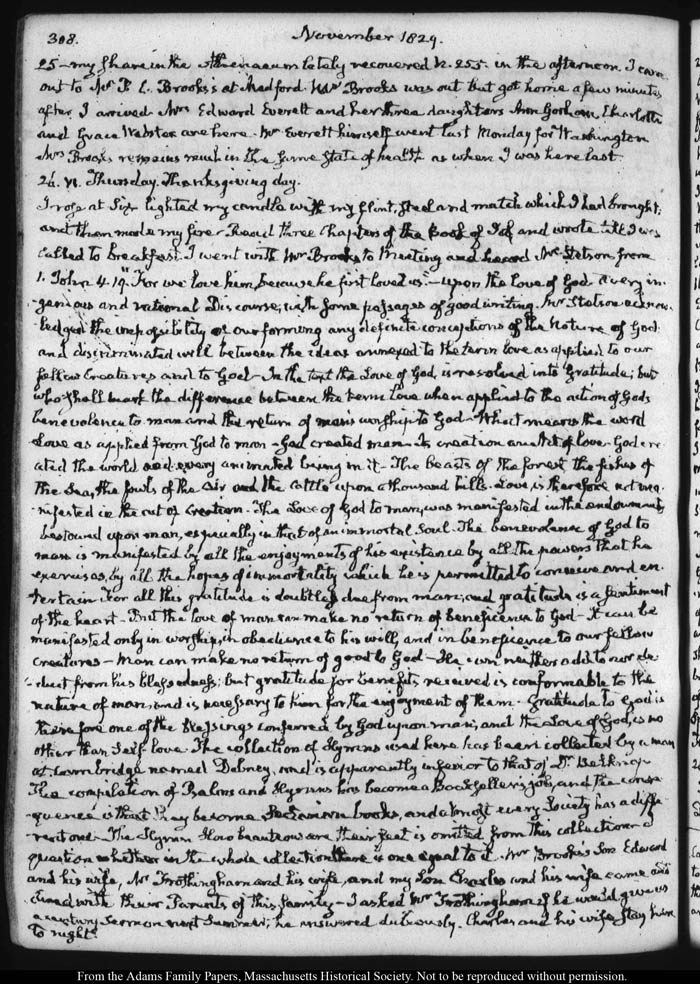 308.
November 1829.
25 — my share in the Athenaeum lately recovered N. 255. in the afternoon I came
out to Mr P. C. Brooks's at Medford. Mr Brooks was out but got home a few minutes
after I arrived. Mrs Edward Everett and her three daughters Ann Gorham, Charlotte
and Grace Webster are here. Mr Everett himself went last Monday for Washington
Mrs Brooks remains much in the same state of health as when I was here last.
26. VI. Thursday. Thanksgiving day.
I rose at Six lighted my candle with my flint, steel and match which I had brought;
and then made my fire. Read three Chapters of the Book of Job and wrote till I was
called to breakfast. I went with Mr Brooks to Meeting and heard Mr Stetson from
1. John 4. 19. "For we love him, because he first loved us" — upon the love of God. A very in-
-genious and rational Discourse, with some passages of good writing. Mr Stetson acknow-
ledged the impossibility of our forming any definite conceptions of the Nature of God;
and discriminated well between the ideas annexed to the term love as applied to our
fellow Creatures and to God — In the text the Love of God, is resolved into Gratitude; but
who shall mark the difference between the term Love when applied to the action of Gods
benevolence to man and the return of man's worship to God — What means the word
Love as applied from God to man — God created man — Is creation an Act of love. God cre-
ated the world and every animated being in it — The beasts of the forest the fishes of
the Sea, the fowls of the Air and the cattle upon a thousand hills. Love is therefore not ma-
nifested in the act of Creation. The Love of God to man, was manifested in the endowments
bestowed upon man, especially in that of an immortal Soul. The benevolence of God to
man is manifested by all the enjoyments of his existence by all the powers that he
exercises, by all the hopes of immortality which he is permitted to conceive and en-
tertain For all this gratitude is doubtless due from man; and gratitude is a sentiment
of the heart — But the love of man can make no return of beneficence to God — It can be
manifested only in worship, in obedience to his will, and in beneficence to our fellow
creatures — Man can make no return of good to God — He can neither add to nor de-
-duct from his blessedness; but gratitude for benefits received is conformable to the
nature of man, and is necessary to him for the enjoyment of them. Gratitude to God is
therefore one of the blessings conferred by God upon man, and the Love of God, is no
other than Self love. The collection of Hymns used here has been collected by a man
at Cambridge named Dabney, and is apparently inferior to that of Dr Belknap
The compilation of Psalms and Hymns has become a Bookseller's job, and the conse-
-quence is that they become Sectarian books, and almost every Society has a diffe-
rent one. The Hymn How beauteous are their feet is omitted from this collection. I
question whether in the whole collection there is one equal to it. Mr Brooks's Son Edward
and his wife, Mr Frothingham and his wife, and my Son Charles and his wife came and
dined with their Parents of this family — I asked Mr Frothingham if he would give us
a century Sermon next Summer; he answered dubiously. Charles and his wife stay here
to night.
From the Adams Family Papers, Massachusetts Historical Society. Not to be reproduced without permission.